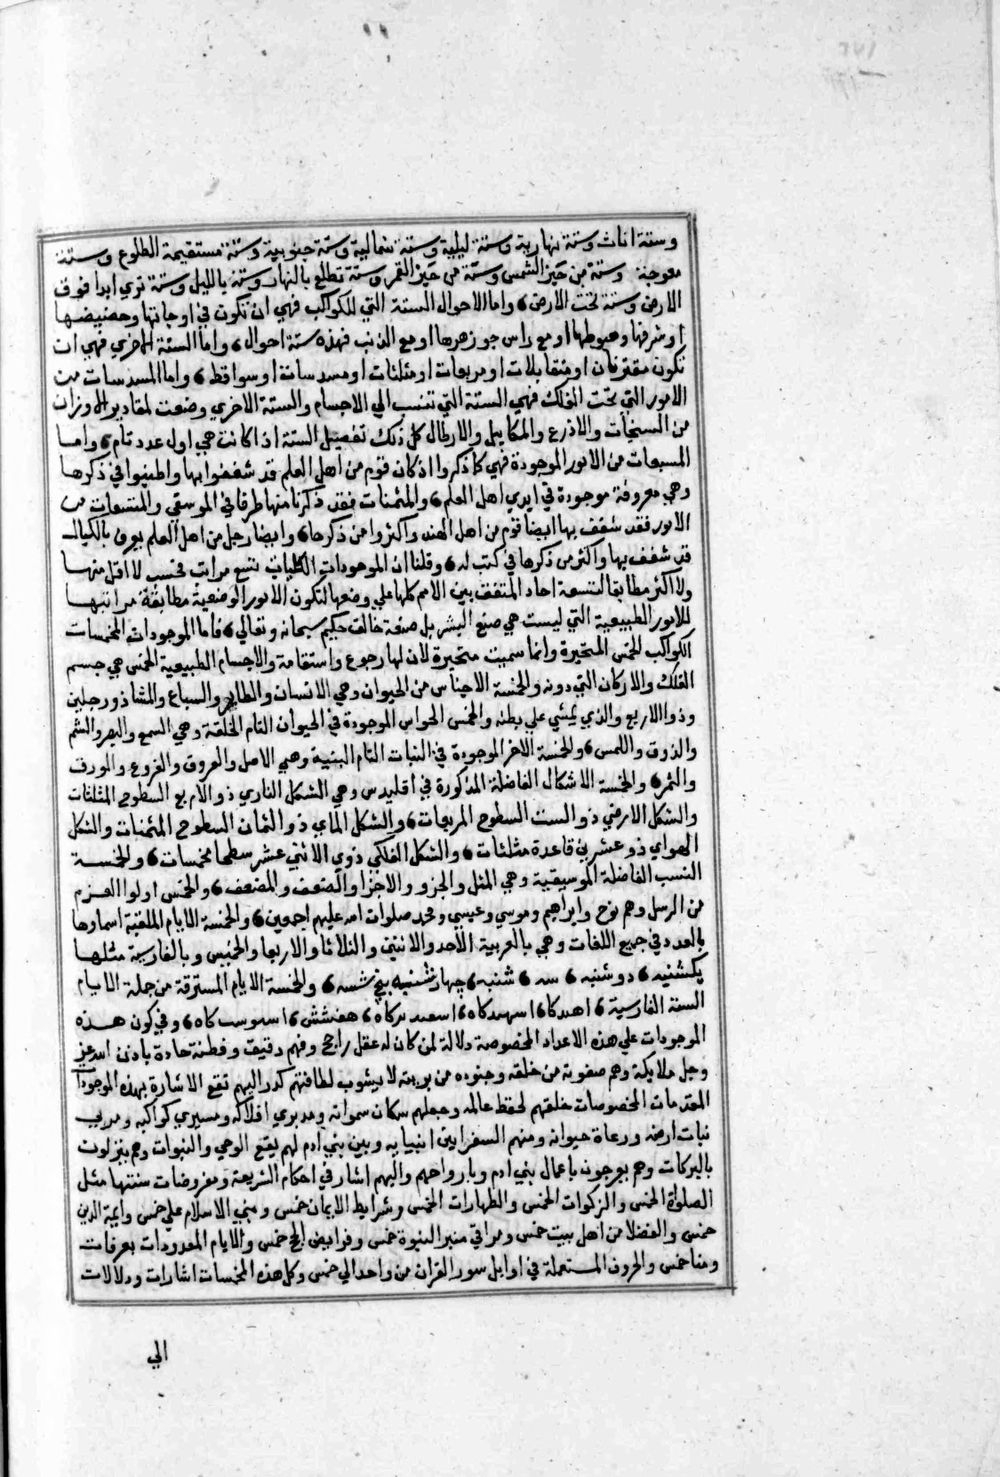 وستة اناث وستة نهارية وستة ليلية وستة شمالية وستة جنوبية وستة مستقيمة الطلوع وستة
معوجة وستة من حيز الشمس وستة من حيز القمر وستة تطلع بالنهار وستة بالليل وستة تري ابدا فوق
الارض وستة تحت الارض 6 واما الاحوال الستة التي للكواكب فهي ان تكون في اوجاتها وحضيضها
او شرفها وهبوطها او مع راس جوزهرها او مع الذنب فهذه ستة احوال 6 واما الستة الاخري فهي ان
تكون مقترنان او متقابلات او مربعات او مثلثات او مسدسات او سواقط 6 واما المسدسات من
الامور التي تحت الفلك فهي الستة التي تنسب الي الاجسام والستة الاخري وضعت لمقادير الاوزان
من السنجات والاذرع والمكاييل والارطال كل ذلك تفضيل الستة اذا كانت هي اول عدد تام 6 واما
المسبعات من الامور الموجودة فهي كما ذكروا اذ كان قوم من اهل العلم قد شغفوا بها واطنبوا في ذكرها
وهي معروفة موجودة في ايدي اهل العلم 6 والمثمنات فقد ذكرنا منها طرفا في الموسيقي والمتسعات من
الامور فقد شغف بها ايضا قوم من اهل الهند واكثروا من ذكرها 6 وايضا رجل من اهل العلم يعرف بالكيال
قد شغف بها واكثر من ذكرها في كتب له 6 وقلنا ان الموجودات الكليات تسع مراتب فحسب لا اقل منها
ولا اكثر مطابقا لتسعة احاد المتفق بين الامم كلها علي وضعها لتكون الامور الوضعية مطابقة مراتبها
للامور الطبيعية التي ليست هي صنع البشر بل صنعة خالق حكيم سبحانه وتعالي 6 فاما الموجودات المخمسات
الكواكب الخمس المتحيرة وانما سميت متحيرة لان لها رجوع واستقامة والاجسام الطبيعية الخمس هي جسم
الفلك والاركان التي دونه والخمسة الاجناس من الحيوان وهي الانسان والطاير والسباع والمشا ذو رجلين
وذو الاربع والذي يمشي علي بطنه والخمس الحواس الموجودة في الحيوان التام الخلقة وهي السمع والبصر والشم
والذوق واللمس 6 والخمسة الاخر الموجودة في النبات التام البنية وهي الاصل والعروق والفروع والورق
والثمر 6 والخمسة الاشكال الفاضلة المذكورة في اقليدس وهي الشكل الناري ذو الاربع السطوح المثلثات
والشكل الارضي ذو الست السطوح المربعات 6 والشكل الماي ذو الثمان السطوح المثمنات والشكل
الهواي ذو عشرين قاعدة مثلثات 6 والشكل الفلكي ذوي الاثني عشر سطحا مخمسات 6 والخمسة
النسب الفاضلة الموسيقية وهي المثل والجزو والاجزا والضعف والمضعف 6 والخمس اولوا العزم
من الرسل وهم نوح وابراهيم وموسي وعيسي ومحمد صلوات الله عليهم اجمعين 6 والخمسة الايام الملقبة اسماوها
بالعدد في جميع اللغات وهي بالعربية الاحد والاثنين والثلاثا والاربعا والخميس وبالفارسية مثلها
يكشنبه 6 دو شنبه 6 سه 6 شنبه 6 چهار شنبه پنج شسه 6 والخمسة الايام المسترقة من جملة الايام
السنة الفارسية 6 اهندكا 6 اسهندكاه 6 اسعندركاه 6 هفشش 6 اسوسكاه 6 وفي كون هذه
الموجودات علي هذه الاعداد المخصوصة دلالة لمن كان له عقل راجح وفهم دقيق وفطنة حادة بان الله عز
وجل ملايكة وهم صفوته من خلقه وجنوده من بريته لا يشوب لطافتهم كدر اليهم تقع الاشارة بهذه الموجودات
المقدمات المخصوصات خلقهم لحفظ عالمه وجعلهم سكان سمواته ومدبري افلاكه ومسيري كواكبه ومربي
نبات ارضه ورعاة حيوانه ومنهم السفرا بين انبيايه وبين بني ادم لهم يقع الوحي والنبوات وهم ينزلون
بالبركات وهم يعرجون باعمال بني ادم وبارواحهم واليهم اشار في احكام الشريعة ومفروضات سنتها مثل
الصلواة الخمس والزكوات الخمس والطهارات الخمس وشرايط الايمان خمس ومبني الاسلام علي خمس وايمة الدين
خمس والفضلا من اهل بيت خمس ومراقي منبر النبوة خمس وفرايض الحج خمس والايام المعدودات بعرفات
ومنا خمس والحروف المستعملة في اوايل سور القران من واحد الي خمس وكل هذه المخمسات اشارات ودلالات
الي